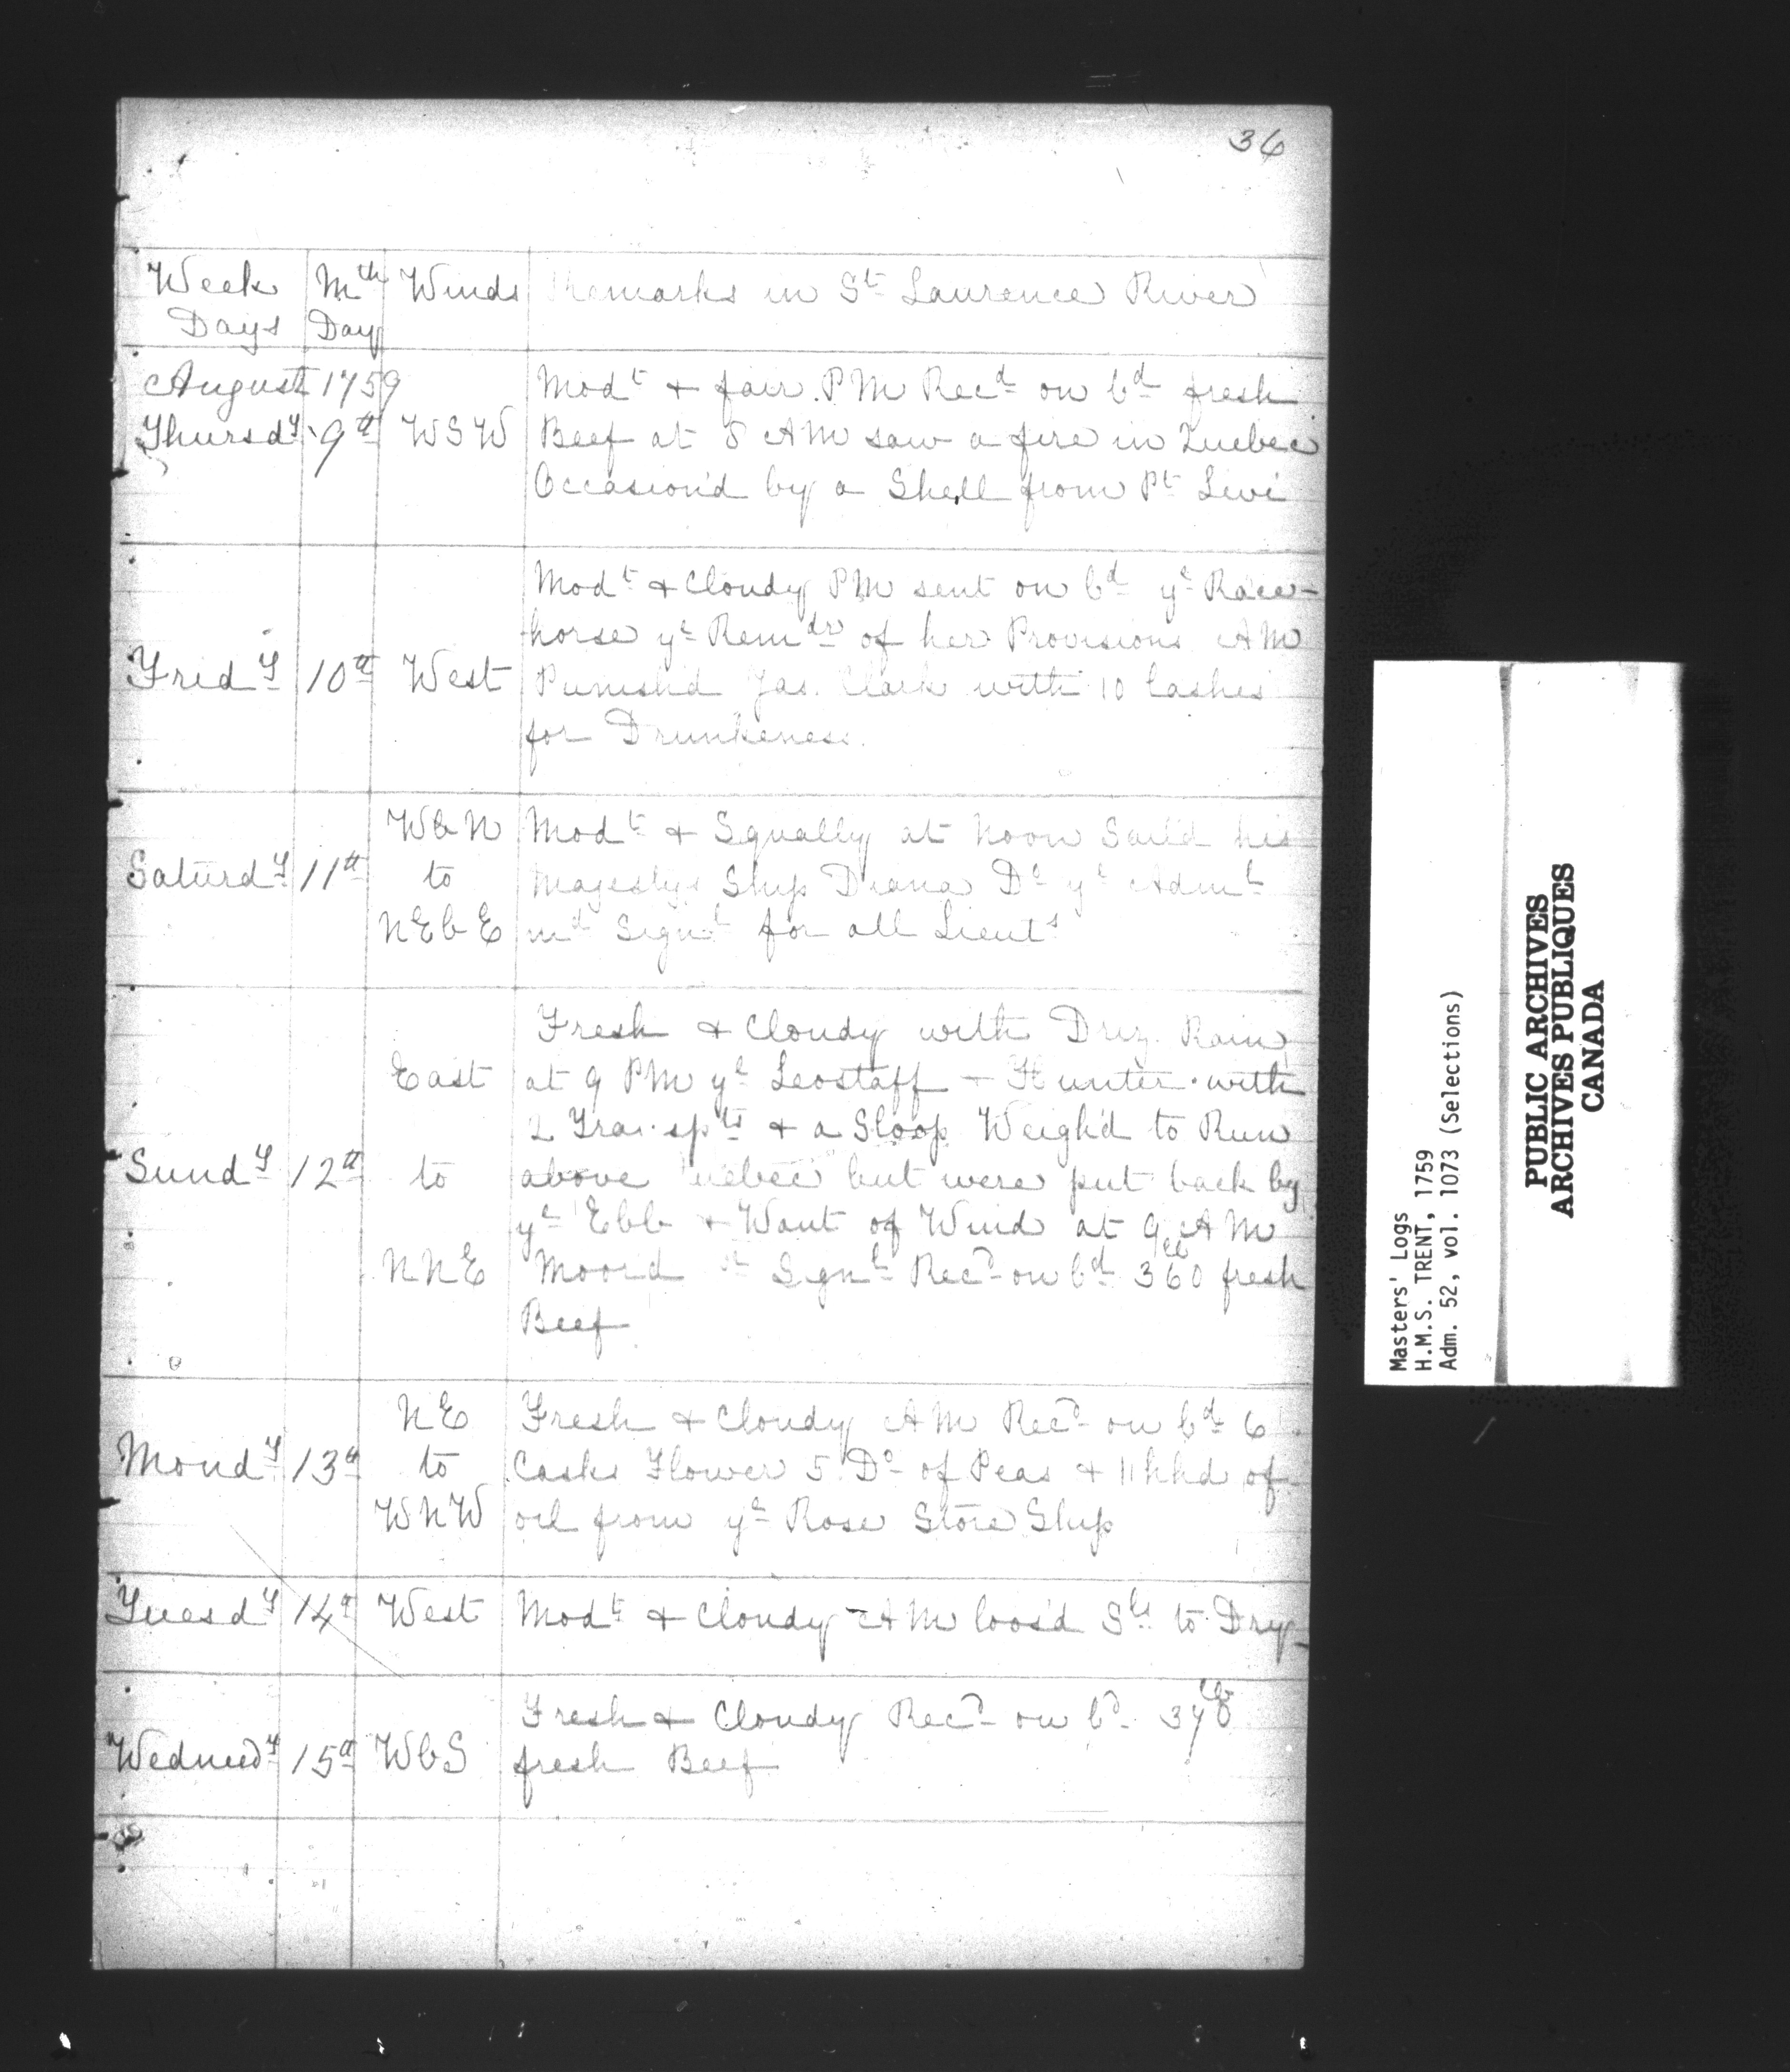 36
Week Days Mth Day Winds Remarks in St Laurence River
August 1759
Thursdy 9th WSW
Modt & fair PM Recd on bd fresh
Beef at 8 AM saw a fire in Quebec
Occasion'd by a Shell from Pt Levi
Fridy 10th West
Modt & Cloudy PM sent on bd ye Race-
horse ye Remdr of her Provisions AM
Punish'd Jas. Clark with 10 lashes
for Drunkeness.
Saturdy 11th WbN to NEbE
Modt & Squally at Noon Sail'd his
Majestys Ship Diana Do ye Adml
md Signl for all Lieuts
Sundy 12th East to NNE
Fresh & Cloudy with Driz. Rain
at 9 PM ye Leostaff & Hunter with
2 Transpts & a Sloop Weigh'd to Run
above uebec but were put back by
ye Ebb & Want of Wind at 9 AM
Moord Signl Recd on bd 360 lb fresh
Beef
Mondy 13th NE to WNW
Fresh & Cloudy AM Recd on bd 6
Casks Flower 5 Do of Peas & 11 hhd of
oil from ye Rose Store Ship
Tuesdy 14th West
Modt & Cloudy AM loos'd Sls to Dry
Wednesdy 15th WbS
Fresh & Cloudy Recd on bd 378 lb
fresh Beef
Masters' Logs
H.M.S. TRENT, 1759
Adm. 52, vol. 1073 (Selections)
PUBLIC ARCHIVES
ARCHIVES PUBLIQUES
CANADA